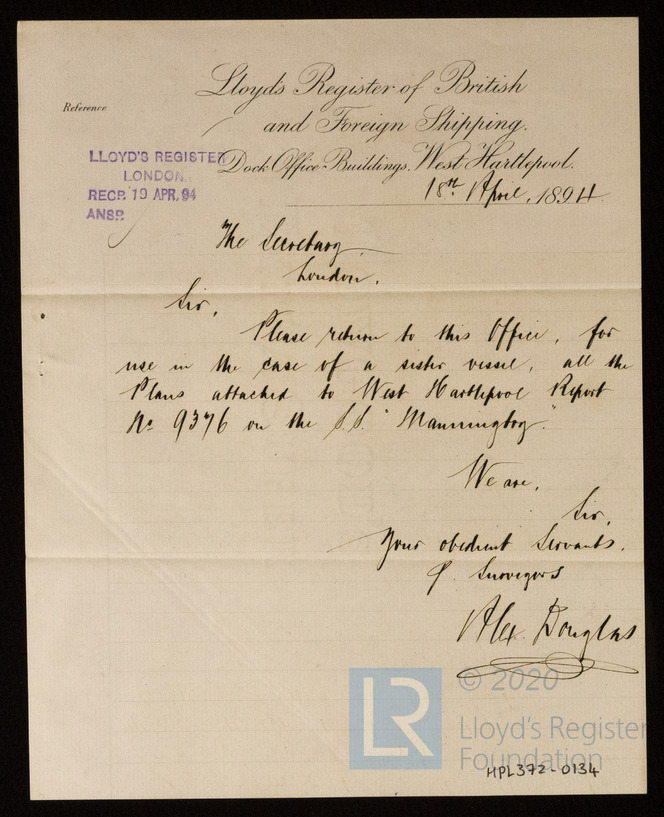 Lloyd's Register of British
and Foreign Shipping.
Reference
Dock Office Buildings, West Hartlepool.
LLOYD'S REGISTER
LONDON.
RECD. 19 APR. 94
ANSD.
18th April, 1894
The Secretary
London.
Sir,
Please return to this Office, for
use in the case of a sister vessel, all the
Plans attached to West Hartlepool Report
No 9376 on the S.S. "Manningtry."
We are,
Sir,
Your obedient Servants.
p. Surveyors
Alex. Douglas
LR
© 2020
Lloyd's Register
Foundation
HPL372-0134